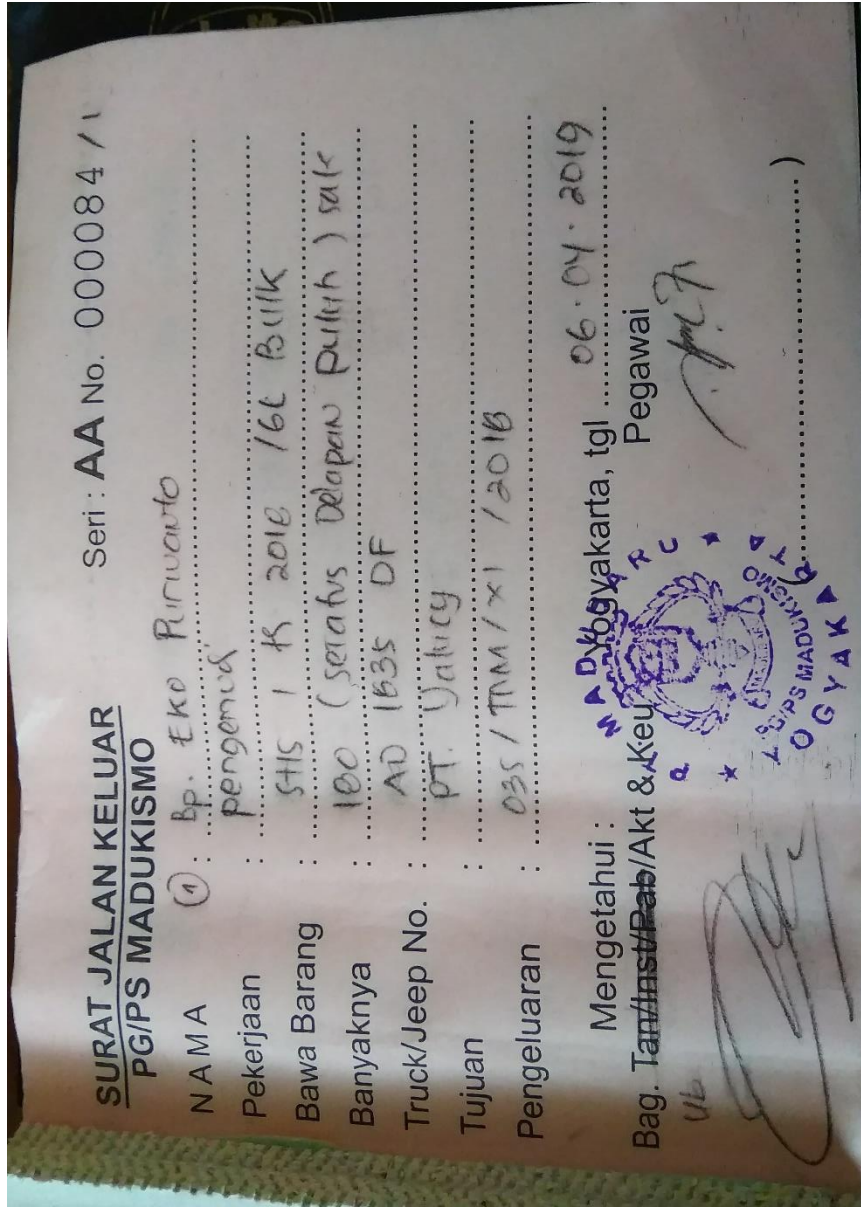 SURAT JALAN KELUAR
PG/PS MADUKISMO
Seri : AA No. 000084 /1
NAMA ① : Bp. Eko Purwanto
Pekerjaan : pengemudi
Bawa Barang : SHS 1 K 2018 Bulk
Banyaknya : 180 (seratus Delapan puluh) sak
Truck/Jeep No. : AD 1835 DF
Tujuan : PT.
Pengeluaran : 035 / /XI /2018
Mengetahui :
Yogyakarta, tgl 06.04.2019
Bag. Tan/Inst/Pab/Akt & Keu
Pegawai
Ub.
PG/PS MADUKISMO
YOGYAKARTA
(..............................)